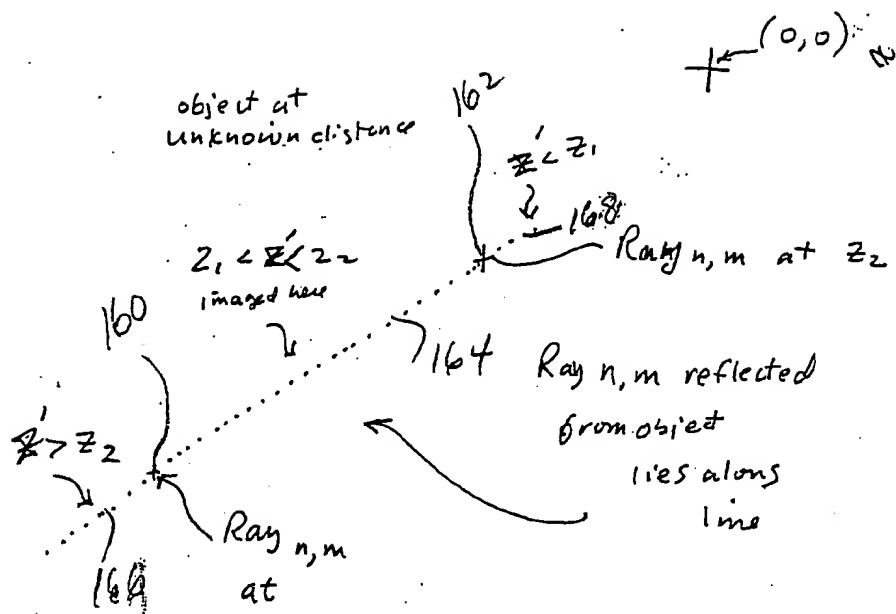 (0,0)
object at
unknown distance
162
z' < z₁
168
Ray n,m at z₂
z₁ < z' < z₂
imaged here
160
164
Ray n,m reflected
from object
lies along
line
z' > z₂
Ray n,m
at